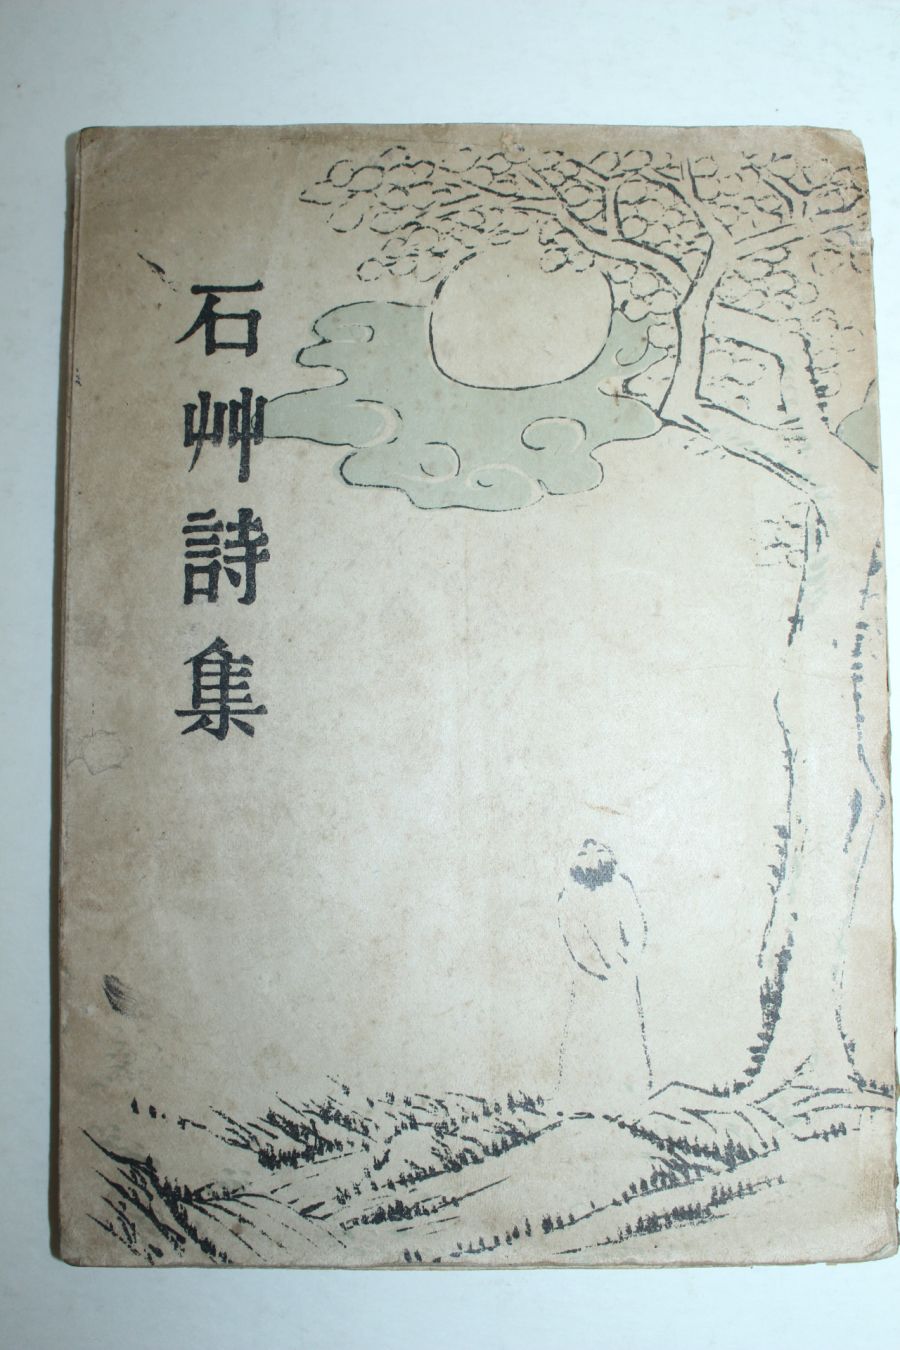 石艸詩集